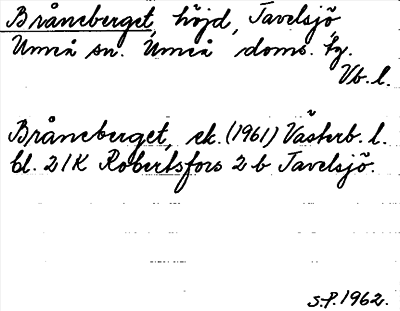 Bråneberget, höjd, Tavelsjö,
Umeå sn. Umeå doms. tg.
Vb. l.
Bråneberget, ek. (1961) Västerb. l.
bl. 21K Robertsfors 2 b Tavelsjö.
S.P. 1962.